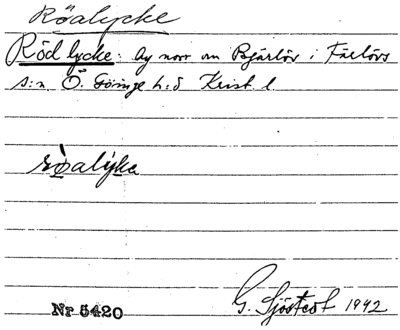 Röalycke
Röd lycke: Äg norr om Bjärlöv i Färlövs
s:n Ö. Göinge h:d Krist. l.
röalyka
Nr 5420 G. Sjöstedt 1942